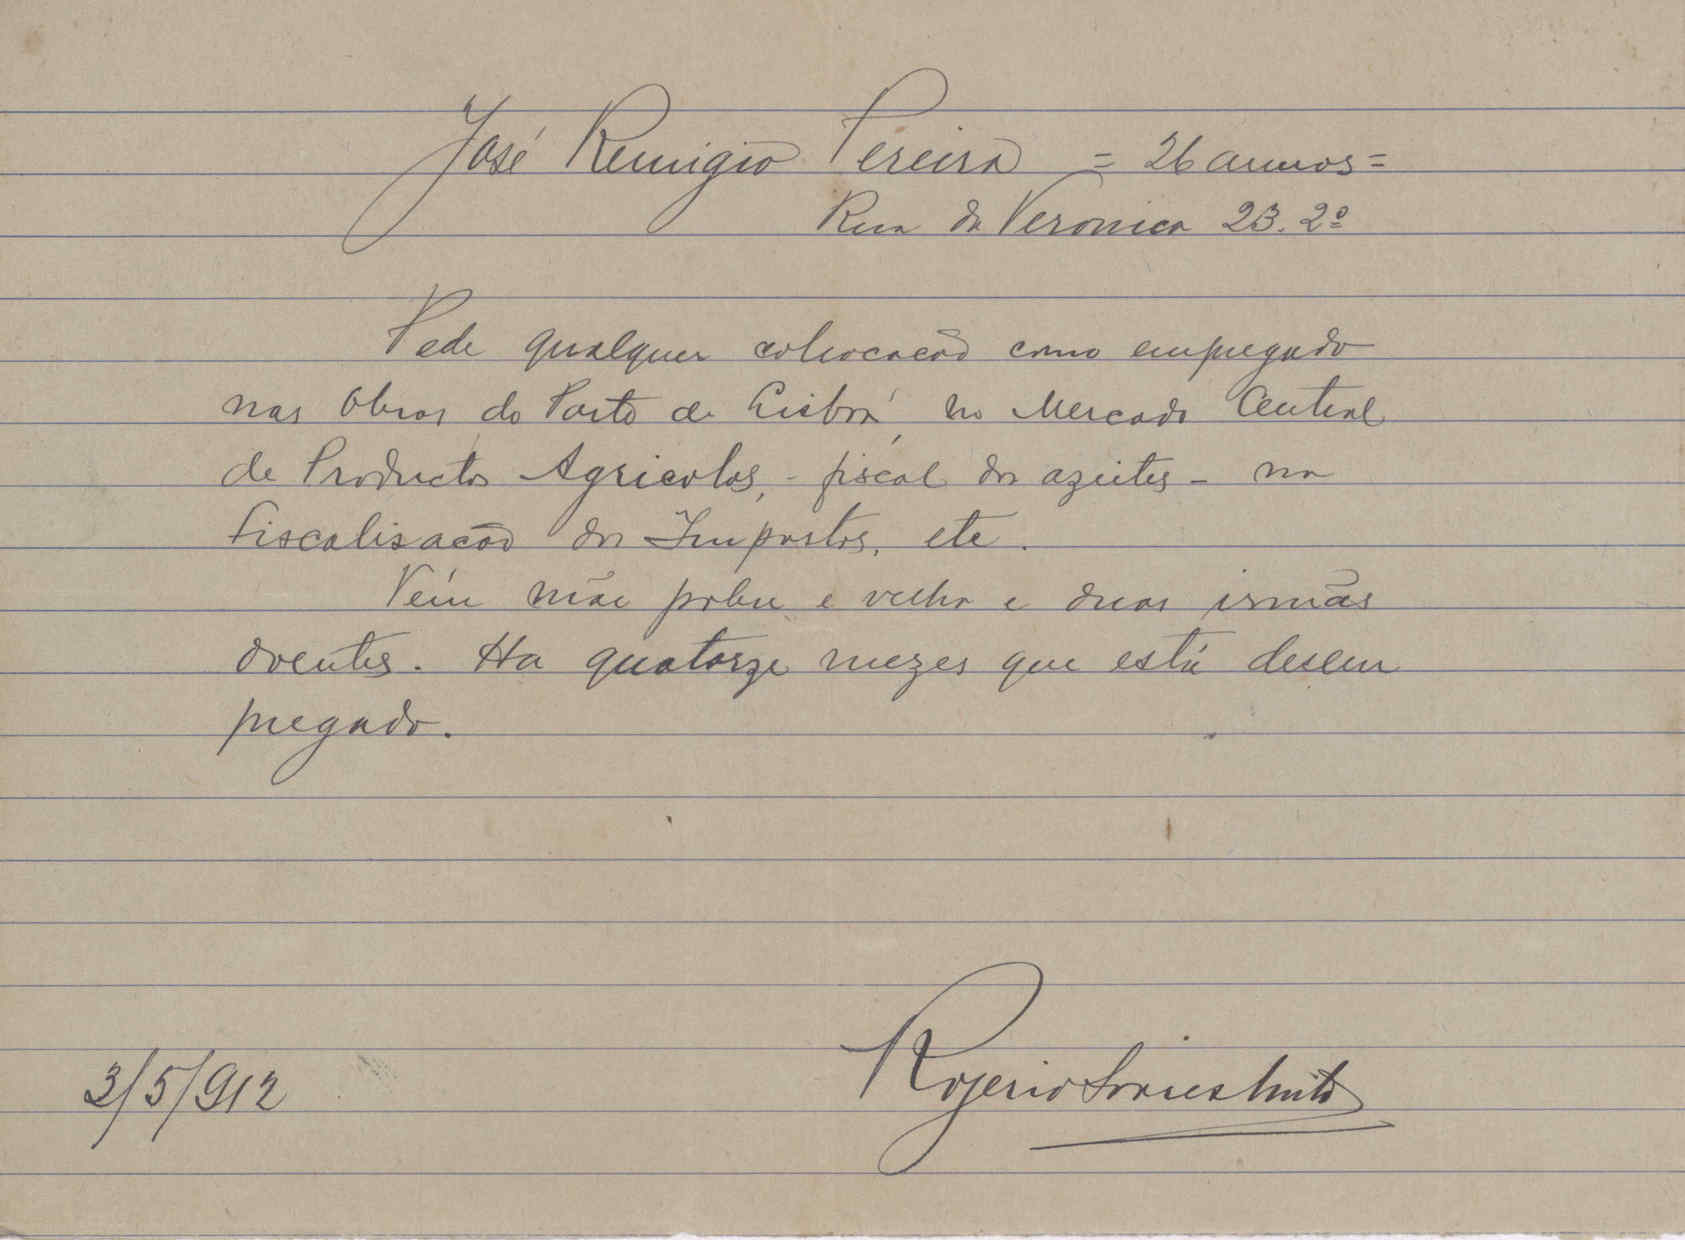 José Remigio Pereira = 26 annos =
Rua da Veronica 23. 2º
Pede qualquer collocacão como empregado
nas Obras do Porto de Lisboa, no Mercado Central
de Productos Agricolas, - fiscal dos azeites - na
Fiscalisacão dos Impostos, etc.
Tém mãe pobre e velha e duas irmãs
doentes. Ha quatorze mezes que está desem
pregado.
3/5/912
Rogerio